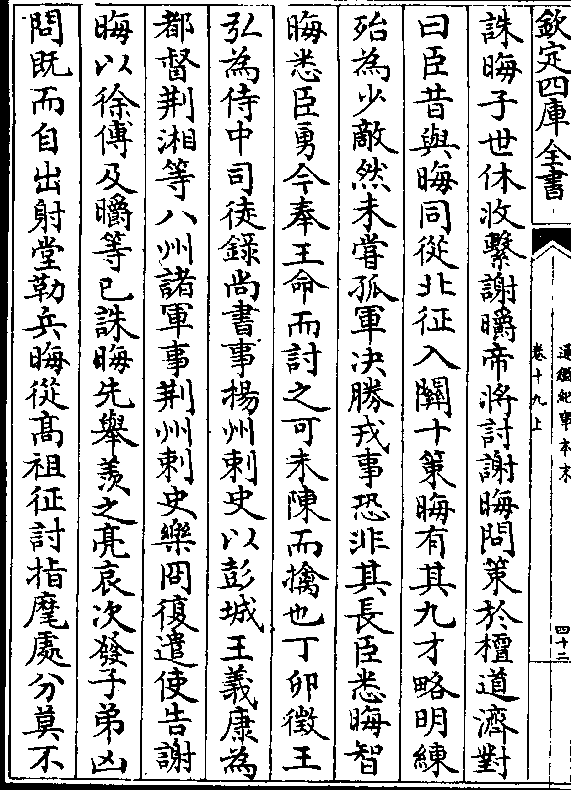 欽定四庫全書
通鑑紀事本末
卷十九上
四十二
誅晦子世休收繫謝㬭帝將討謝晦問策於檀道濟對
曰臣昔與晦同從北征入關十策晦有其九才略明練
殆為少敵然未嘗孤軍决勝戎事恐非其長臣悉晦智
晦悉臣勇今奉王命而討之可未陳而擒也丁卯徵王
弘為侍中司徒錄尚書事揚州刺史以彭城王義康為
都督荆湘等八州諸軍事荆州刺史樂冏復遣使告謝
晦以徐傅及㬭等已誅晦先舉羨之亮哀次發子弟凶
問既而自出射堂勒兵晦從高祖征討指麾處分莫不